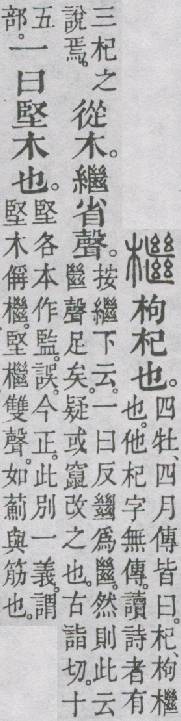 檵枸杞也。四牡、四月傳皆曰。杞、枸檵
也。他杞字無傳。讀詩者有
三杞之
說焉。從木。繼省聲。按繼下云。一曰反𢇍爲㡭。然則此云
㡭聲足矣。疑或竄改之也。古詣切。十
五
部。一曰堅木也。堅各本作監。誤。今正。此別一義。謂
堅木偁檵。堅檵雙聲。如薊與筋也。